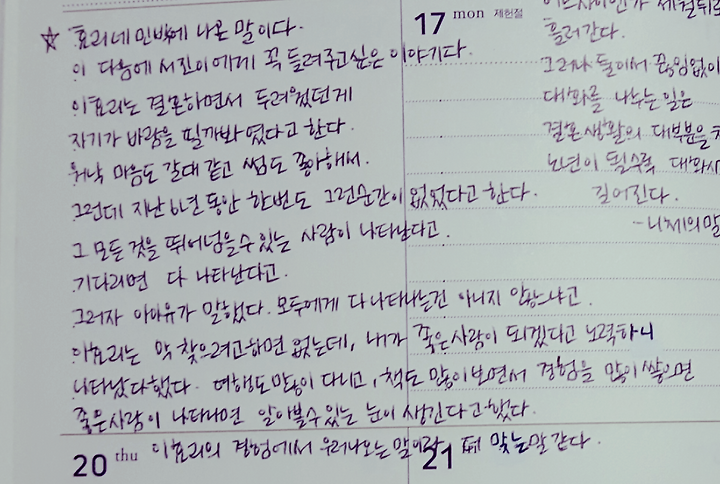 ☆ 효리네 민박에 나온 말이다.
이 다음에 서진이에게 꼭 들려주고싶은 이야기다.
이효리는 결혼하면서 두려웠던게
자기가 바람을 필까봐 였다고 한다.
워낙 마음도 갈대 같고 썸도 좋아해서.
그런데 지난 6년 동안 한번도 그런순간이 없었다고 한다.
그 모든 것을 뛰어넘을수 있는 사람이 나타난다고.
기다리면 다 나타난다고.
그러자 아이유가 말했다. 모두에게 다 나타나는건 아니지 않느냐고.
이효리는 막 찾으려고하면 없는데, 내가 좋은사람이 되겠다고 노력하니
나타났다했다. 여행도 많이 다니고, 책도 많이보면서 경험을 많이 쌓으면
좋은사람이 나타나면 알아볼수 있는 눈이 생긴다고했다.
20 thu 이효리의 경험에서 우러나오는 말이라 21 맞는말 같다.
17 mon 제헌절
흘러간다.
그러나 둘이서 끊임없이
대화를 나누는 일은
결혼 생활의 대부분을
노년이 될수록 대화시
길어진다.
- 니체의말